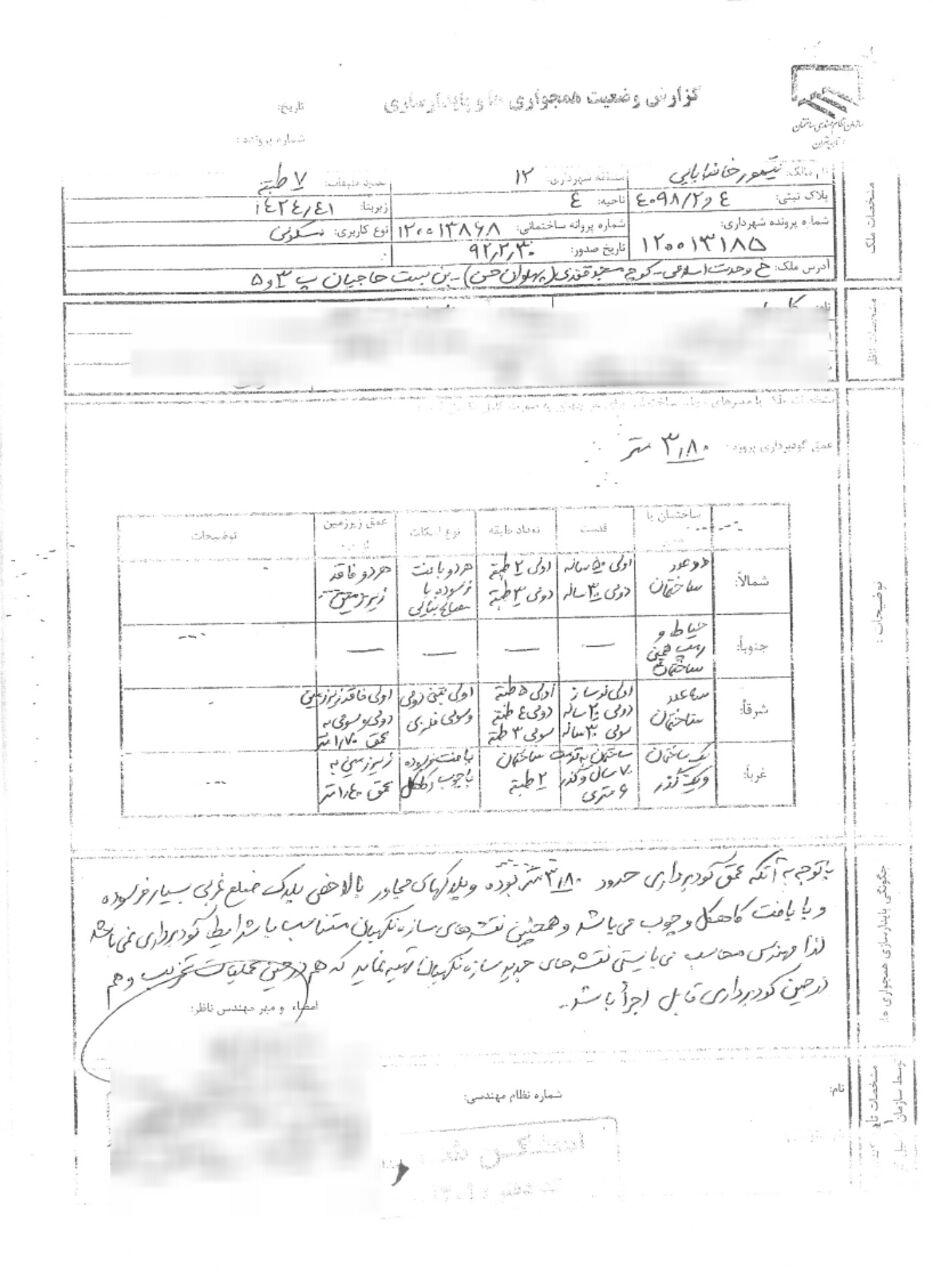 گزارش وضعیت همجواری ها و پایدارسازی
سازمان نظام مهندسی ساختمان
استان تهران
تاریخ:
شماره پرونده:
مشخصات ملک
نام مالک:
منطقه شهرداری: ۱۲
تعداد طبقات: ۷ طبقه
پلاک ثبتی: ۴ و ۴۰۹۸/۲
ناحیه: ۴
زیربنا: ۱۴۲۴/۴۱
شماره پرونده شهرداری: ۱۲۰۰۱۳۱۸۵
شماره پروانه ساختمانی: ۱۲۰۰۱۳۸۶۸
نوع کاربری: مسکونی
تاریخ صدور: ۹۲,۲,۳۰
آدرس ملک: خ وحدت اسلامی - کوچه (پهلوان حسن) - بن بست حاجیان پ ۳ و ۵
مشخصات ناظر
توضیحات:
عمق گودبرداری پروژه: ۳/۸۰ متر
ساختمان یا
قدمت
تعداد طبقه
نوع اسکلت
عمق زیرزمین
توضیحات
شمالاً:
دو عدد ساختمان
اولی ۵۰ ساله
دومی ۳۰ ساله
اولی ۲ طبقه
دومی ۳ طبقه
هر دو بافت فرسوده با مصالح بنایی
هر دو فاقد زیرزمین
جنوباً:
حیاط و ساختمان
—
—
—
—
---
شرقاً:
سه عدد ساختمان
اولی نوساز
دومی ۲۰ ساله
سومی ۳۰ ساله
اولی ۵ طبقه
دومی ۴ طبقه
سومی ۳ طبقه
اولی بتنی دومی و سومی فلزی
اولی فاقد زیرزمین
دومی و سومی به عمق ۱/۷۰ متر
غرباً:
یک ساختمان و یک گذر
ساختمان به قدمت ۷۰ سال و گذر ۶ متری
ساختمان ۲ طبقه
بافت فرسوده با چوب و کاهگل
زیرزمین به عمق ۱/۴۰ متر
---
چگونگی پایدارسازی همجواری ها:
با توجه به آنکه عمق گودبرداری حدود ۳/۸۰ متر بوده و پلاکهای مجاور بالاخص پلاک ضلع غربی بسیار فرسوده
و با بافت کاهگل و چوب می باشد و همچنین نقشه های سازه نگهبان متناسب با شرایط گودبرداری نمی باشد
لذا مهندس محاسب می بایستی نقشه های جدید سازه نگهبان تهیه نماید که هم در حین عملیات تخریب و هم
در حین گودبرداری قابل اجرا باشد..
امضاء و مهر مهندس ناظر:
نام:
شماره نظام مهندسی:
توسط سازمان